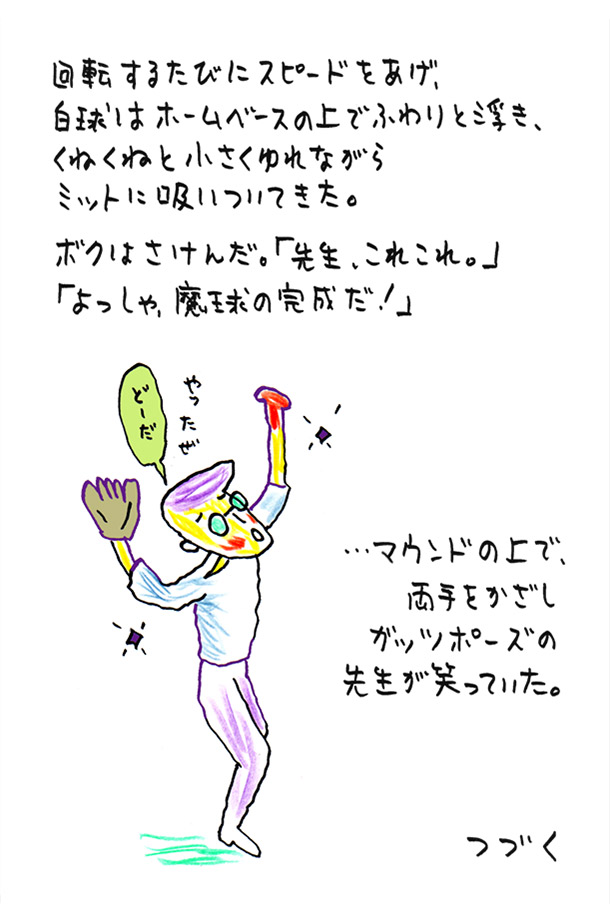 回転するたびにスピードをあげ、
白球はホームベースの上でふわりと浮き、
くねくねと小さくゆれながら
ミットに吸いついてきた。
ボクはさけんだ。「先生、これこれ。」
「よっしゃ、魔球の完成だ！」
やったぜ
どーだ
…マウンドの上で、
両手をかざし
ガッツポーズの
先生が笑っていた。
つづく